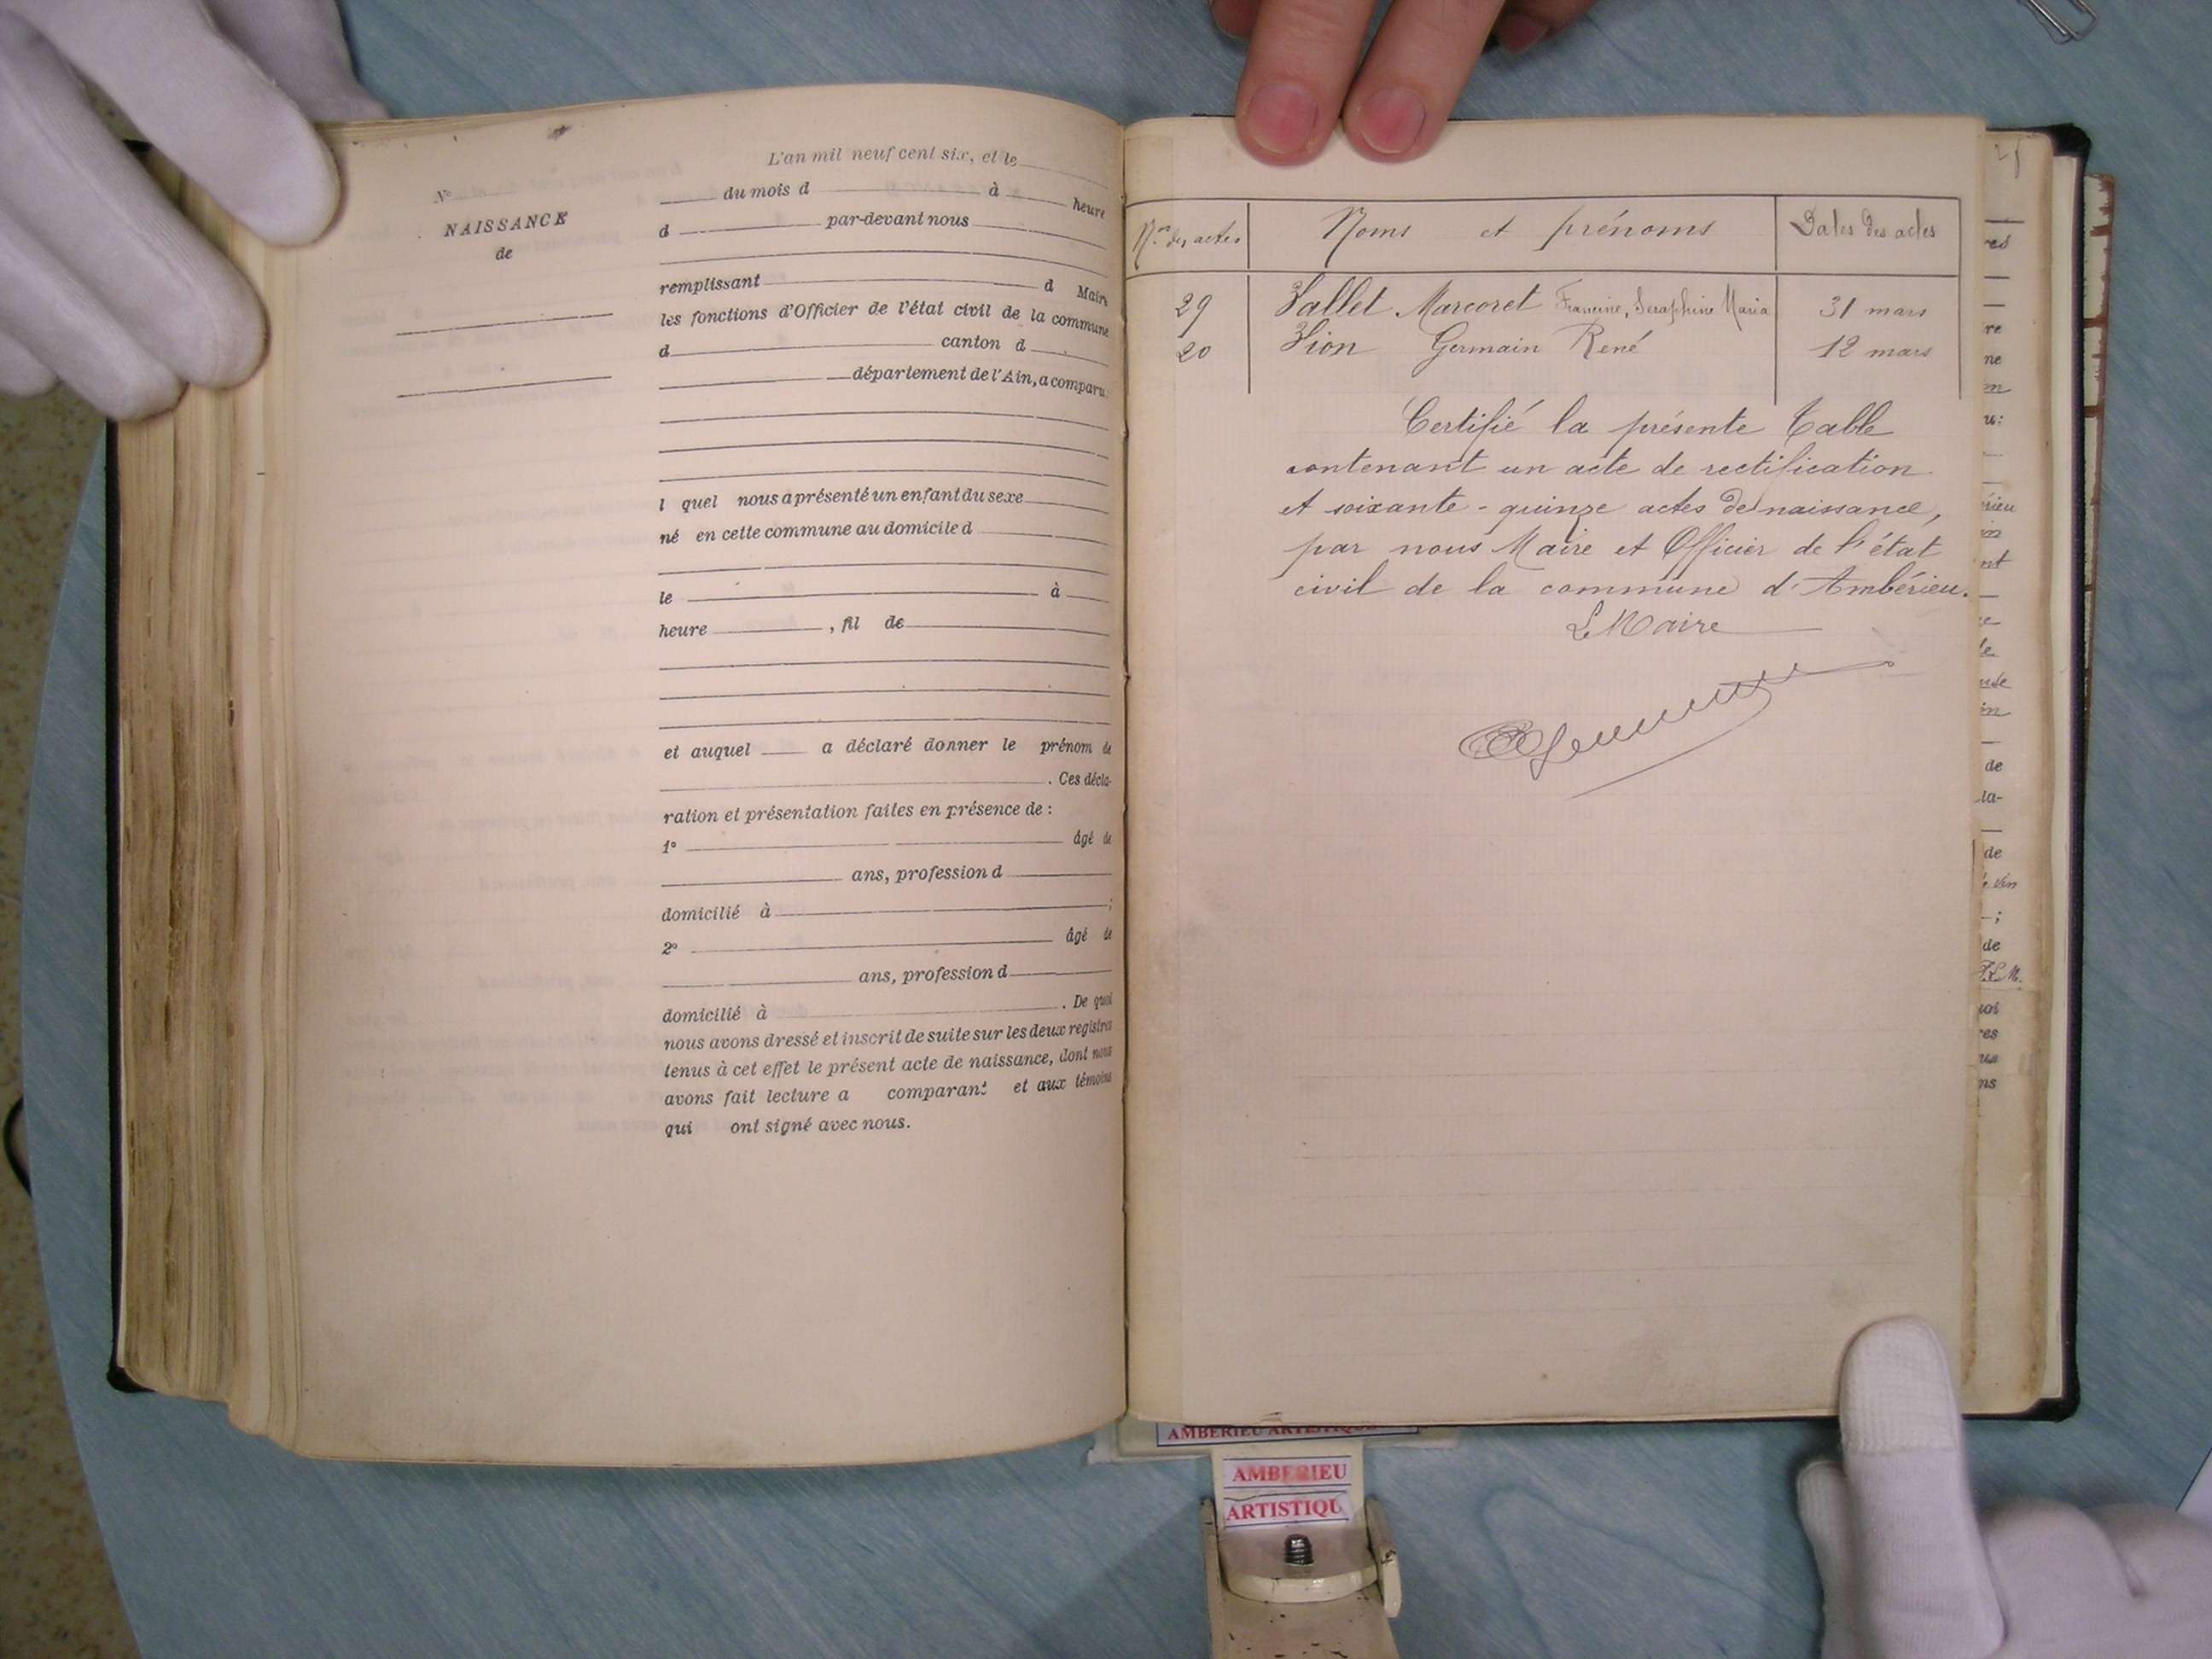 L'an mil neuf cent six, et le
N°
du mois d à heure
NAISSANCE
d par-devant nous
de
remplissant d Maire
les fonctions d'Officier de l'état civil de la commune
d canton d
département de l'Ain, a comparu:
l quel nous a présenté un enfant du sexe
né en cette commune au domicile d
le à
heure , fil de
et auquel a déclaré donner le prénom de
. Ces décla-
ration et présentation faites en présence de :
1° âgé de
ans, profession d
domicilié à ;
2° âgé de
ans, profession d
domicilié à . De quoi
nous avons dressé et inscrit de suite sur les deux registres
tenus à cet effet le présent acte de naissance, dont nous
avons fait lecture a comparant et aux témoins
qui ont signé avec nous.
Nos des actes Noms et prénoms Dates des actes
29 Vallet Marcoret Francine, Seraphine Maria 31 mars
20 Vion Germain René 12 mars
Certifié la présente Table
contenant un acte de rectification
et soixante-quinze actes de naissance,
par nous Maire et Officier de l'état
civil de la commune d'Ambérieu.
Le Maire
AMBERIEU ARTISTIQUE
AMBERIEU
ARTISTIQU